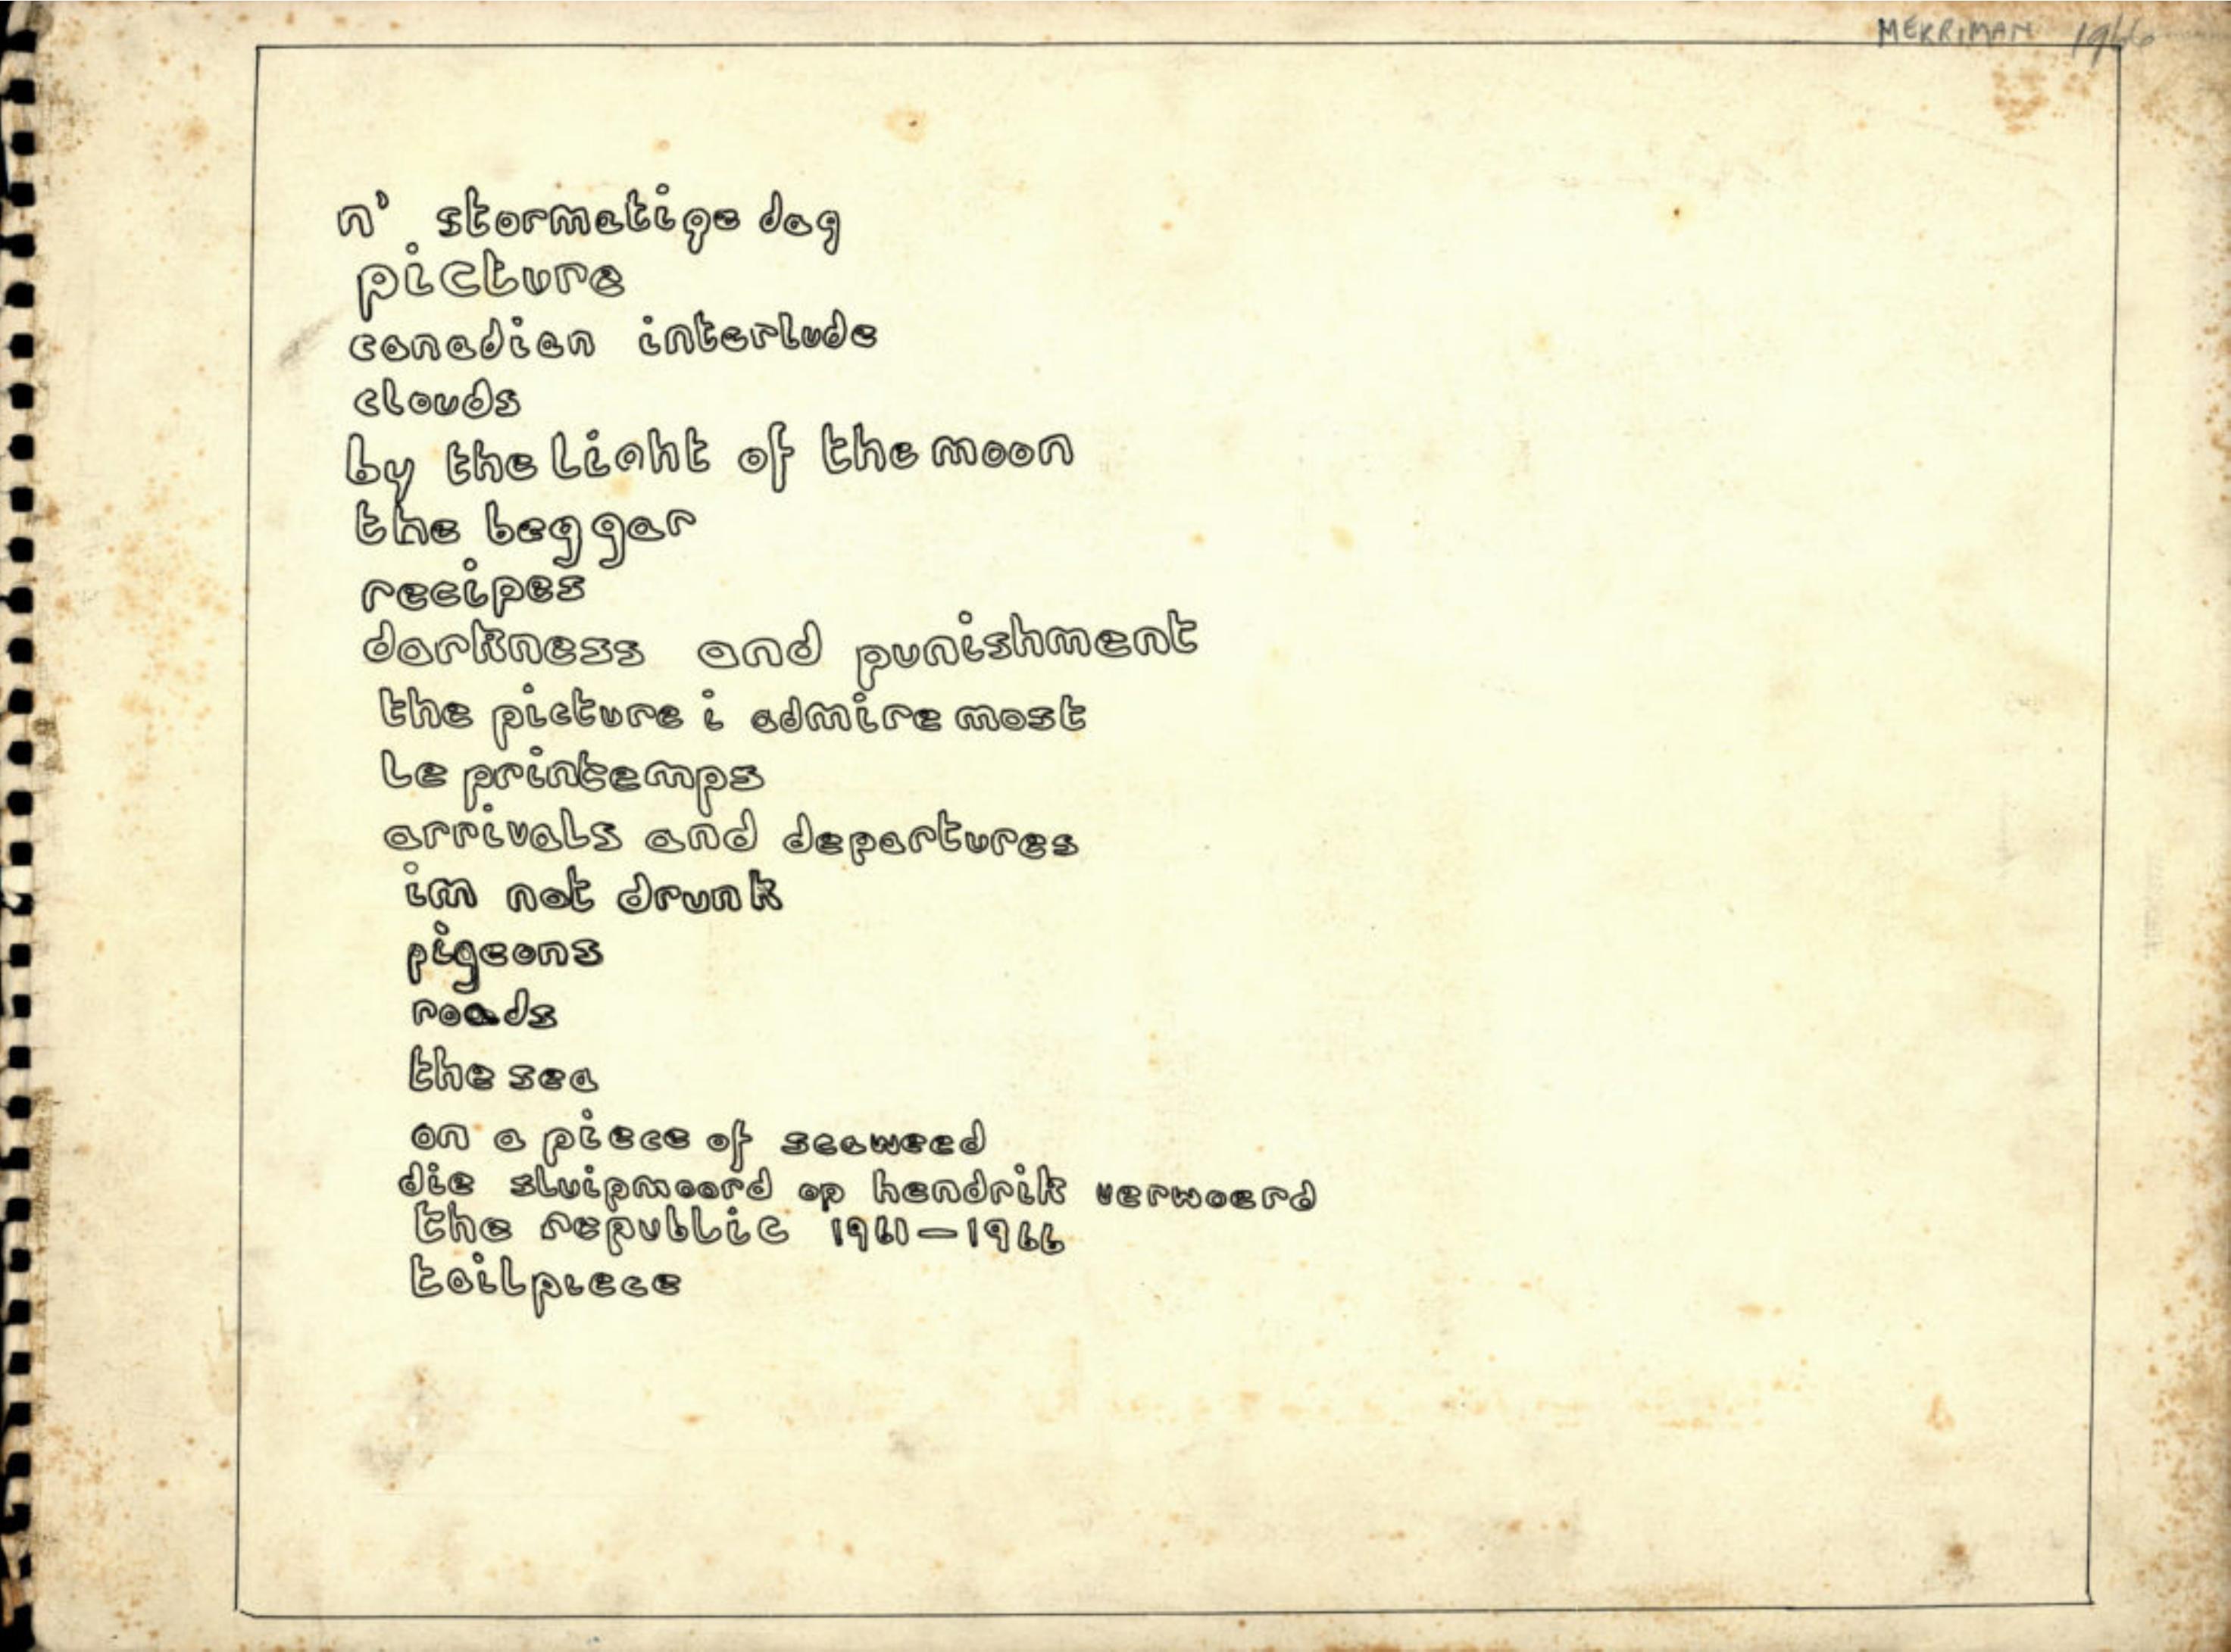 MERRIMAN 1966
n' stormatige dag
picture
canadian interlude
clouds
by the light of the moon
the beggar
recipes
darkness and punishment
the picture i admire most
le printemps
arrivals and departures
im not drunk
pigeons
roads
the sea
on a piece of seaweed
die sluipmoord op hendrik verwoerd
the republic 1961-1966
tailpiece